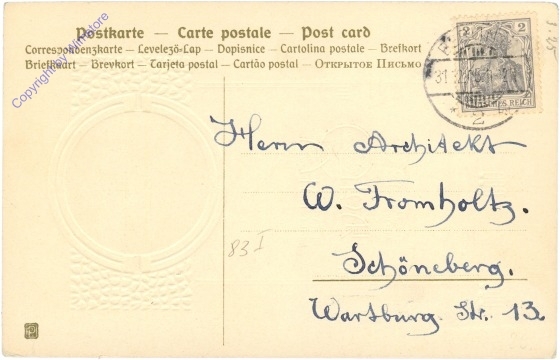 Postkarte – Carte postale – Post card
Correspondenzkarte – Levelező-Lap – Dopisnice – Cartolina postale – Brefkort
Briefkaart – Brevkort – Tarjeta postal – Cartão postal – Открытое Письмо
Copyright by WinStore
2 2
31.12.
DEUTSCHES REICH
2
Herrn Architekt
W. Fromholtz.
83 I
Schöneberg.
Wartburg. Str. 13.
P